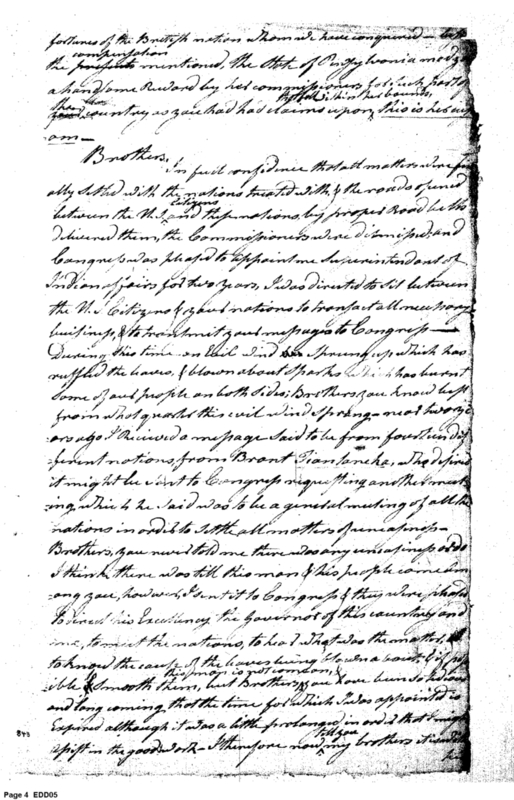 fortunes of the British nation whom we have conquered
compensation
the presents mentioned, the State of Pensylvonia made
a handsome Reward by her commissioners for such part of
that fell within her bounds,
the country as you had had claims upon, this is her
am—
Brothers,
In full confidence that all matters were
ally Settled with the nations treated with, & the roads opened
Citizens
between the U.S. and these nations by proper Road belts
delivered them, the Commissioners were dismissed, and
Congress was pleased to appoint me Superintendant of
Indian affairs for two years, I was directed to Sit between
the U.S. Citizens & your nations to transact all necessary
business, & to transmit your messages to Congress—
During this time an Evil wind Sprung up which has
ruffled the leaves, & blown about Sparks which has burnt
Some of our people on both Sides; Brothers you know best
from what quarter this evil wind Sprang – near two ye
ars ago I Received a message Said to be from fourteen dif
ferent nations from Brant who desired
it might be Sent to Congress requesting another meet
ing, which he Said was to be a general meeting of all the
nations in order to Settle all matters of uneasiness—
Brothers, you never told me there was any uneasiness
I think there was till this man & his people came am
ong you, however, I Sent it to Congress & they were pleased
to direct his Excellency the Governor of this country and
me, to meet the nations, to hear what was the matter,
to know the cause of the leaves being blown about, & if pos
this man is not come on,
ible Smooth them, but Brothers, you have been So
and long coming, that the time for which I was appointed is
Expired although it was a little prolonged in order that I might
tell you
assist in the good work – I therefore now my brothers
843
Page 4 EDD05